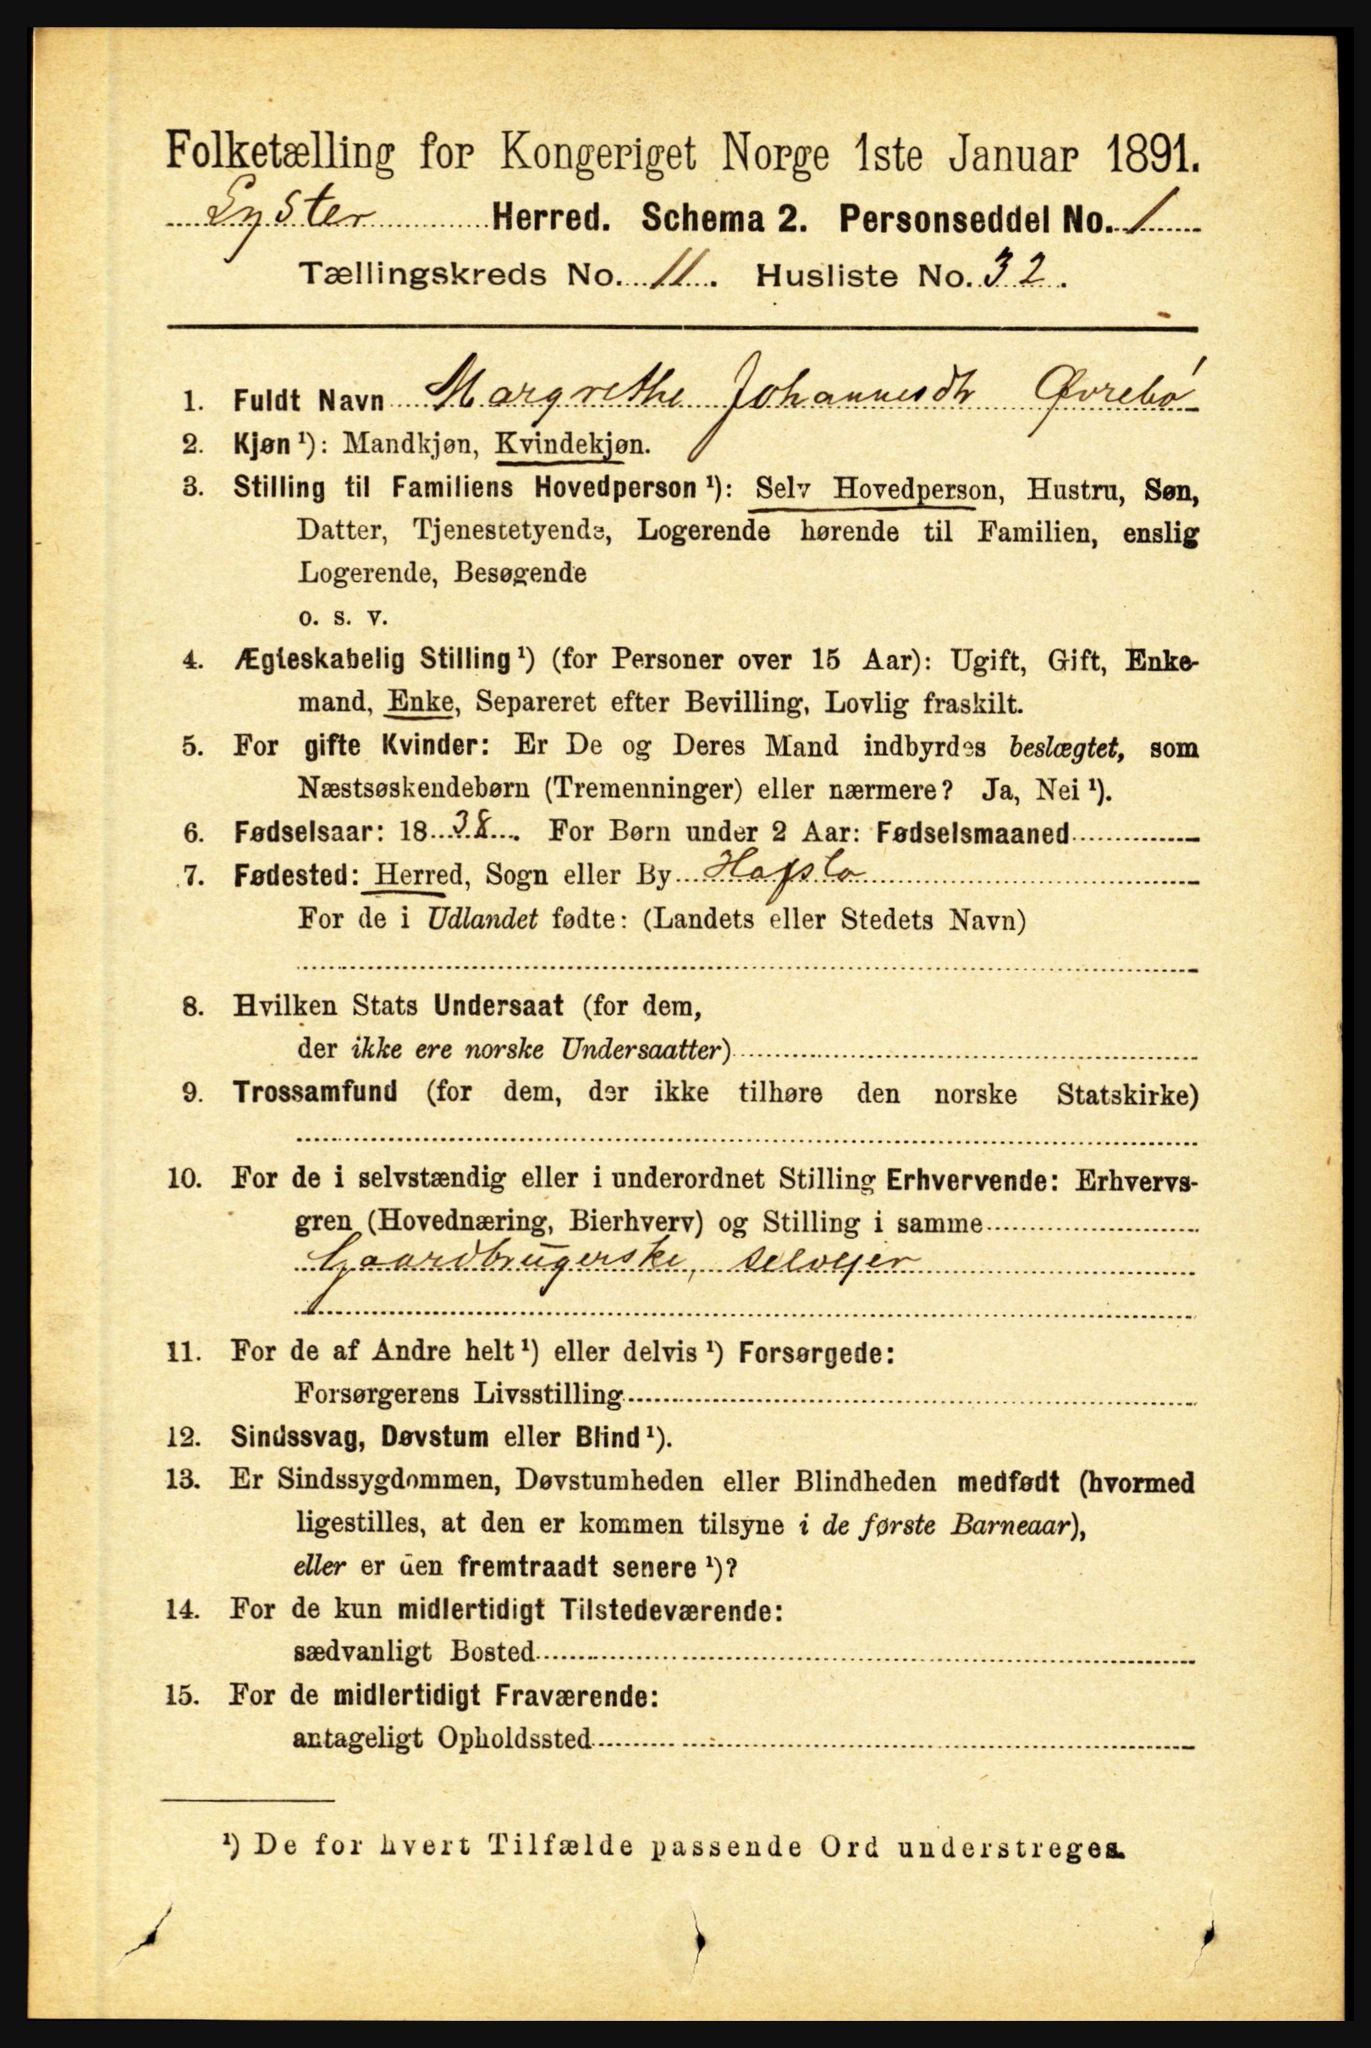 Folketælling for Kongeriget Norge 1ste Januar 1891.
Lyster Herred. Schema 2. Personseddel No. 1
Tællingskreds No. 11. Husliste No. 32.
1. Fuldt Navn Margrethe Johannesdtr Øvrebø
2. Kjøn ¹): Mandkjøn, Kvindekjøn.
3. Stilling til Familiens Hovedperson ¹): Selv Hovedperson, Hustru, Søn,
Datter, Tjenestetyende, Logerende hørende til Familien, enslig
Logerende, Besøgende
o. s. v.
4. Ægteskabelig Stilling ¹) (for Personer over 15 Aar): Ugift, Gift, Enke-
mand, Enke, Separeret efter Bevilling, Lovlig fraskilt.
5. For gifte Kvinder: Er De og Deres Mand indbyrdes beslægtet, som
Næstsøskendebørn (Tremenninger) eller nærmere? Ja, Nei ¹).
6. Fødselsaar: 1838. For Børn under 2 Aar: Fødselsmaaned
7. Fødested: Herred, Sogn eller By Hafslo
For de i Udlandet fødte: (Landets eller Stedets Navn)
8. Hvilken Stats Undersaat (for dem,
der ikke ere norske Undersaatter)
9. Trossamfund (for dem, der ikke tilhøre den norske Statskirke)
10. For de i selvstændig eller i underordnet Stilling Erhvervende: Erhvervs-
gren (Hovednæring, Bierhverv) og Stilling i samme
Gaardbrugerske, selvejer
11. For de af Andre helt ¹) eller delvis ¹) Forsørgede:
Forsørgerens Livsstilling
12. Sindssvag, Døvstum eller Blind ¹).
13. Er Sindssygdommen, Døvstumheden eller Blindheden medfødt (hvormed
ligestilles, at den er kommen tilsyne i de første Barneaar),
eller er den fremtraadt senere ¹)?
14. For de kun midlertidigt Tilstedeværende:
sædvanligt Bosted
15. For de midlertidigt Fraværende:
antageligt Opholdssted
¹) De for hvert Tilfælde passende Ord understreges.